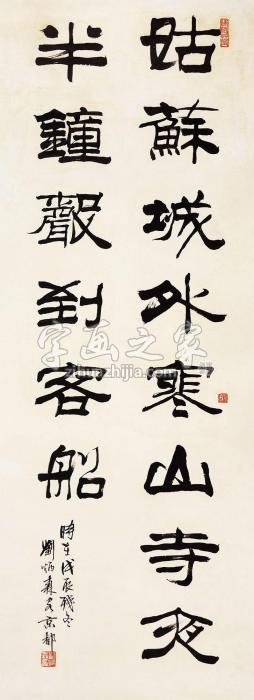 姑蘇城外寒山寺夜
半鐘聲到客船
時在戊辰殘冬
劉炳森客京都
字画之家
zihuazhijia.com